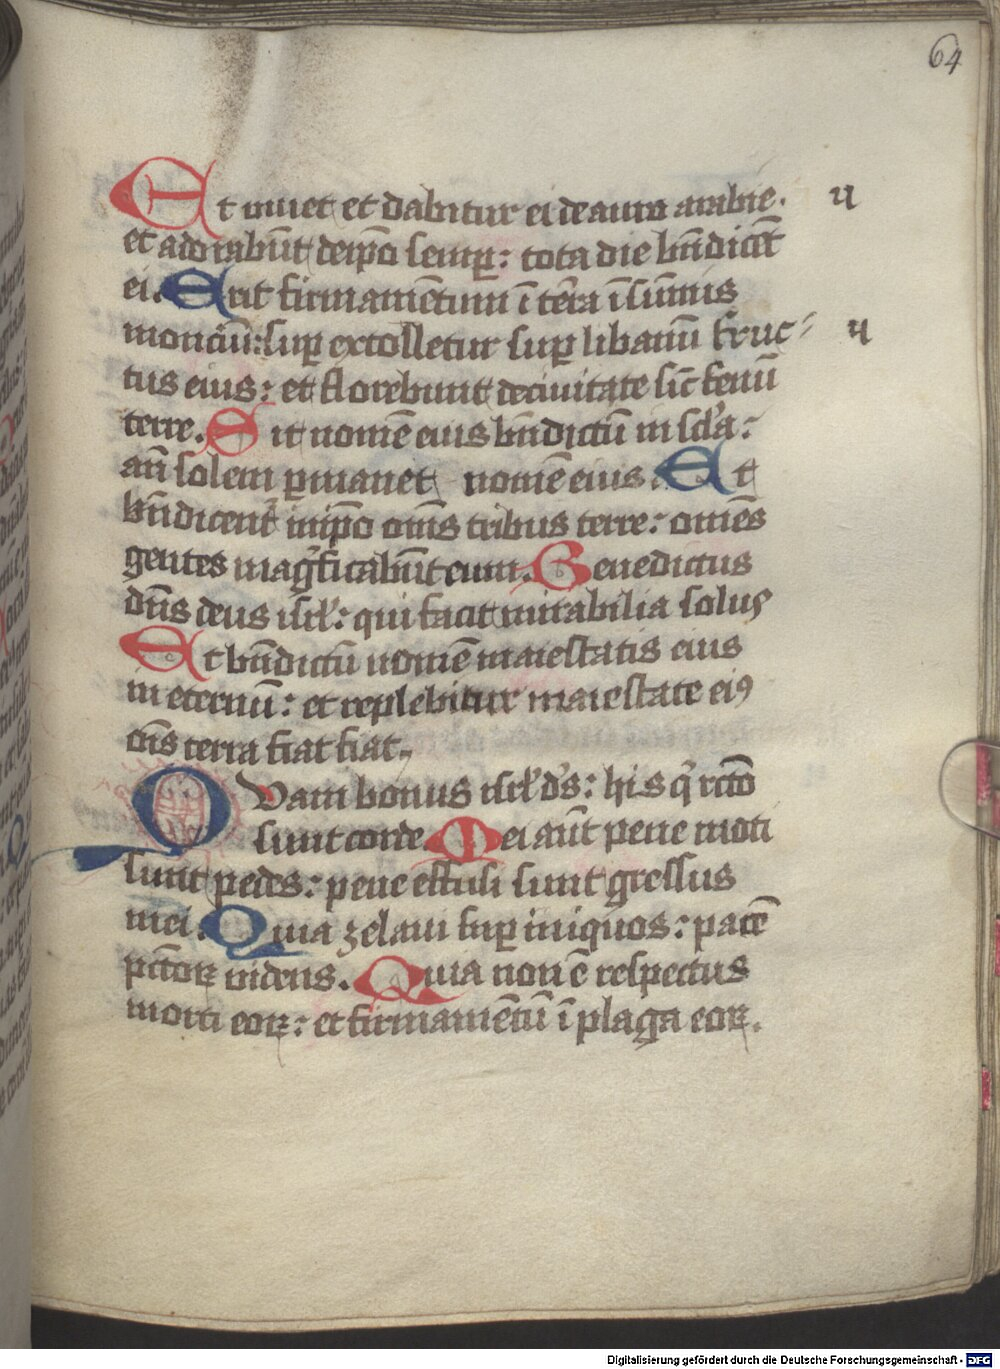 64
Et viuet et dabitur ei de auro arabie. u
et adorabūt deip̄o semꝑ: tota die bn̄dicēt
ei. Erit firmamētum ī terra ī sūmis
monciū: suꝑ extolletur suꝑ libanū fruc- u
tus eius: et florebunt de ciuitate sic̄ fenū
terre. Sit nomē eius bn̄dictū in scl̄a:
an̄ solem ꝑmanet nomē eius. Et
bn̄dicent̄ in ip̄o om̄s tribus terre: omēs
gentes maḡficabūt eum. Benedictus
dn̄s deus isrl̄: qui facit mirabilia solus
Et bn̄dictū nomē maiestatis eius
in eternū: et replebitur maiestate eiꝰ
om̄s terra fiat fiat.
Quam bonus isrl̄ ds̄: his q̄ rcto
sunt corde. Mei aūt pene moti
sunt pedes: pene effusi sunt gressus
mei. Quia zelaui suꝑ iniquos: pacē
pctōꝝ videns. Quia non ē respectus
morti eoꝝ: et firmamētū ī plaga eoꝝ.
Digitalisierung gefördert durch die Deutsche Forschungsgemeinschaft - DFG